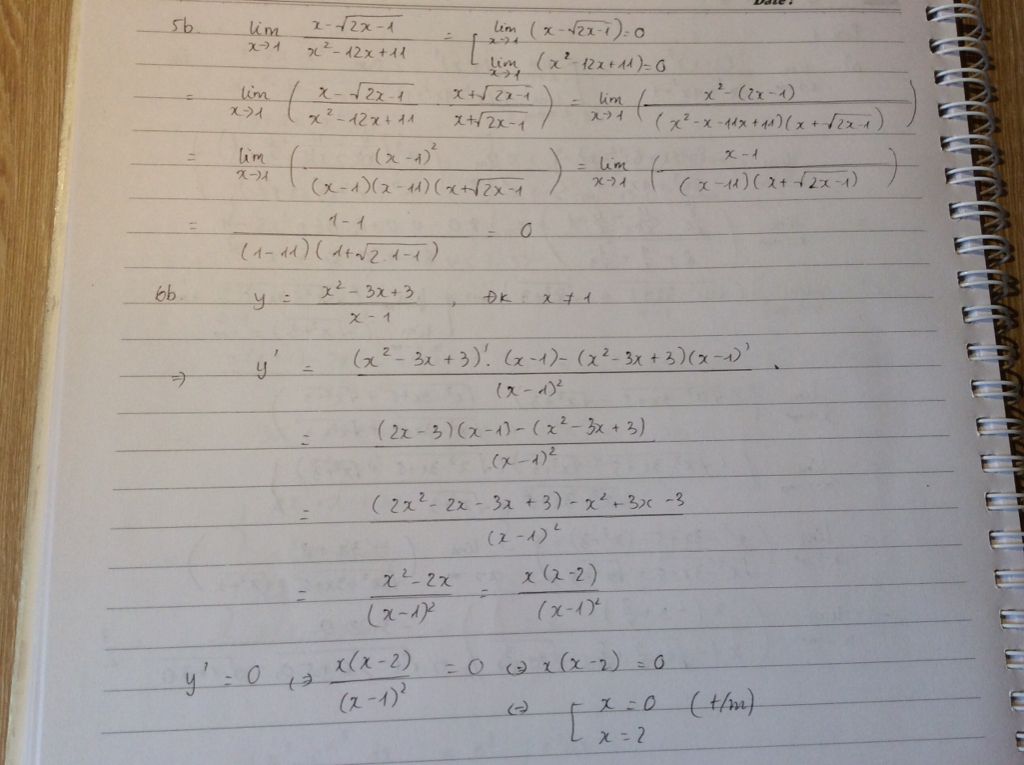 Date:
5b. lim x→1 (x-√(2x-1))/(x²-12x+11) = [ lim x→1 (x-√(2x-1))=0
lim x→1 (x²-12x+11)=0
= lim x→1 ( (x-√(2x-1))/(x²-12x+11) · (x+√(2x-1))/(x+√(2x-1)) ) = lim x→1 ( (x²-(2x-1))/((x²-x-11x+11)(x+√(2x-1))) )
= lim x→1 ( (x-1)²/((x-1)(x-11)(x+√(2x-1)) ) = lim x→1 ( (x-1)/((x-11)(x+√(2x-1))) )
= (1-1)/((1-11)(1+√(2.1-1))) = 0
6b. y = (x²-3x+3)/(x-1) , ĐK x ≠ 1
⇒ y' = ((x²-3x+3)'.(x-1)-(x²-3x+3)(x-1)')/(x-1)² .
= ((2x-3)(x-1)-(x²-3x+3))/(x-1)²
= ((2x²-2x-3x+3)-x²+3x-3)/(x-1)²
= (x²-2x)/(x-1)² = x(x-2)/(x-1)²
y' = 0 ⇔ x(x-2)/(x-1)² = 0 ⇔ x(x-2) = 0
⇔ [ x = 0 (t/m)
x = 2